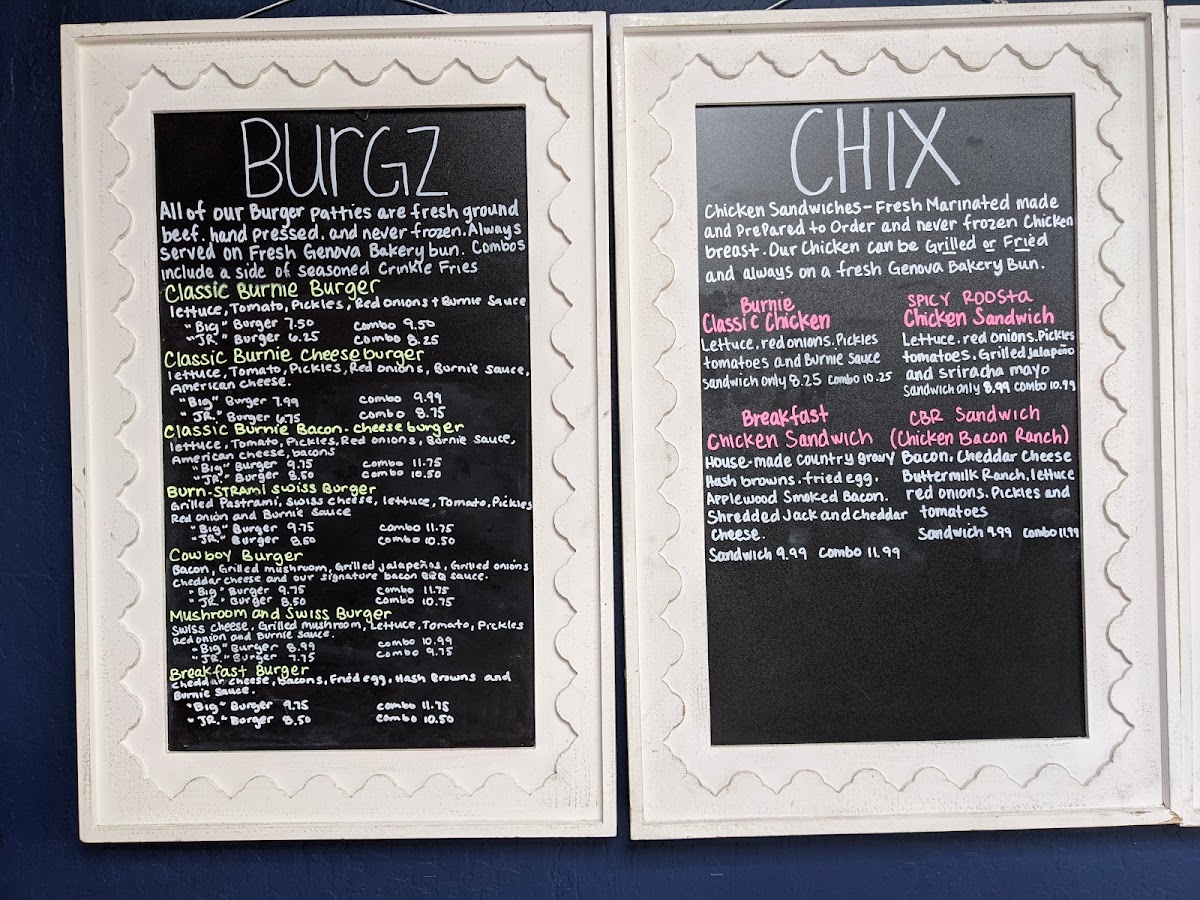 BURGZ
All of our Burger patties are fresh ground
beef. hand pressed. and never frozen. Always
served on Fresh Genova Bakery bun. Combos
include a side of seasoned Crinkle Fries
Classic Burnie Burger
lettuce, Tomato, Pickles, Red onions + Burnie Sauce
"Big" Burger 7.50 Combo 9.50
"JR." Burger 6.25 Combo 8.25
Classic Burnie Cheeseburger
lettuce, Tomato, Pickles, Red onions, Burnie sauce,
American cheese.
"Big" Burger 7.99 Combo 9.99
"JR." Burger 6.75 Combo 8.75
Classic Burnie Bacon-cheeseburger
lettuce, Tomato, Pickles, Red onions, Burnie Sauce,
American cheese, bacons
"Big" Burger 9.75 Combo 11.75
"JR." Burger 8.50 Combo 10.50
Burn-STRAmi Swiss Burger
Grilled Pastrami, swiss cheese, lettuce, Tomato, Pickles
Red onion and Burnie Sauce
"Big" Burger 9.75 Combo 11.75
"JR." Burger 8.50 Combo 10.50
Cowboy Burger
Bacon, Grilled mushroom, Grilled jalapeños, Grilled onions
Cheddar cheese and our signature bacon BBQ sauce.
"Big" Burger 9.75 Combo 11.75
"JR." Burger 8.50 Combo 10.75
Mushroom and Swiss Burger
Swiss cheese, Grilled mushroom, Lettuce, Tomato, Pickles
Red onion and Burnie Sauce.
"Big" Burger 8.99 Combo 10.99
"JR." Burger 7.75 Combo 9.75
Breakfast Burger
Cheddar cheese, Bacons, Fried egg, Hash Browns and
Burnie Sauce.
"Big" Burger 9.75 Combo 11.75
"JR." Burger 8.50 Combo 10.50
CHIX
Chicken Sandwiches - Fresh Marinated made
and Prepared to Order and never frozen Chicken
breast. Our Chicken can be Grilled or Fried
and always on a fresh Genova Bakery Bun.
Burnie
Classic Chicken
Lettuce. red onions. Pickles
tomatoes and Burnie Sauce
Sandwich only 8.25 Combo 10.25
SPICY ROOSTA
Chicken Sandwich
Lettuce. red onions. Pickles
tomatoes. Grilled Jalapeño
and sriracha mayo
Sandwich only 8.99 Combo 10.99
Breakfast
Chicken Sandwich
House-made country gravy
Hash browns. fried egg.
Applewood Smoked Bacon.
Shredded Jack and cheddar
Cheese.
Sandwich 9.99 Combo 11.99
CBR Sandwich
(Chicken Bacon Ranch)
Bacon. Cheddar Cheese
Buttermilk Ranch. lettuce
red onions. Pickles and
tomatoes
Sandwich 9.99 Combo 11.99